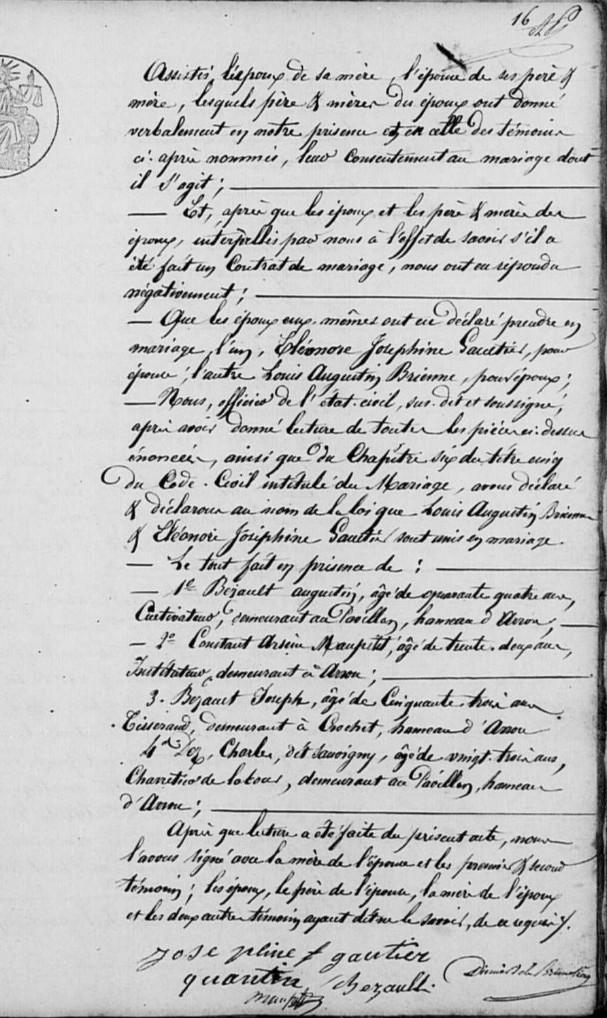 16
Assistés, l'époux de sa mère, l'épouse de ses père &
mère, lesquels père & mères des époux ont donné
verbalement en notre présence et en celle des témoins
ci-après nommés, leur consentement au mariage dont
il s'agit;
— Et, après que les époux et les père & mères des
époux, interpellés par nous à l'effet de savoir s'il a
été fait un Contrat de mariage, nous ont eu répondu
négativement;
— Que les époux eux-mêmes ont eu déclaré prendre en
mariage, l'un, Eléonore Joséphine Gautier, pour
épouse; l'autre Louis Augustin Brienne, pour époux;
— Nous, officier de l'état-civil, sus-dit et soussigné,
après avoir donné lecture de toutes les pièces ci-dessus
énoncées, ainsi que du Chapitre six du titre cinq
du Code-Civil intitulé du Mariage, avons déclaré
& déclarons au nom de la loi que Louis Augustin Brienne
& Eléonore Joséphine Gautier sont unis en mariage.
— Le tout fait en présence de :
— 1º Bezault augustin, âgé de quarante quatre ans,
Cultivateur, demeurant au Pavillon, hameau d'Arrou,
— 2º Constant Arsène Maupetit, âgé de trente-deux ans,
Instituteur, demeurant à Arrou;
3. Bezault Joseph, âgé de Cinquante-trois ans
Tisserand, demeurant à Crochet, hameau d'Arrou
4 Charles, dit Sauvigny, âgé de vingt-trois ans,
Charretier de labour, demeurant au Pavillon, hameau
d'Arrou;
Après que lecture a été faite du présent acte, nous
l'avons signé avec la mère de l'épouse et les premier & second
témoins; les époux, le père de l'épouse, la mère de l'époux
et les deux autres témoins ayant dit ne le savoir, de ce requis.
josephine f gautier
quantin Bezault
Maupetit